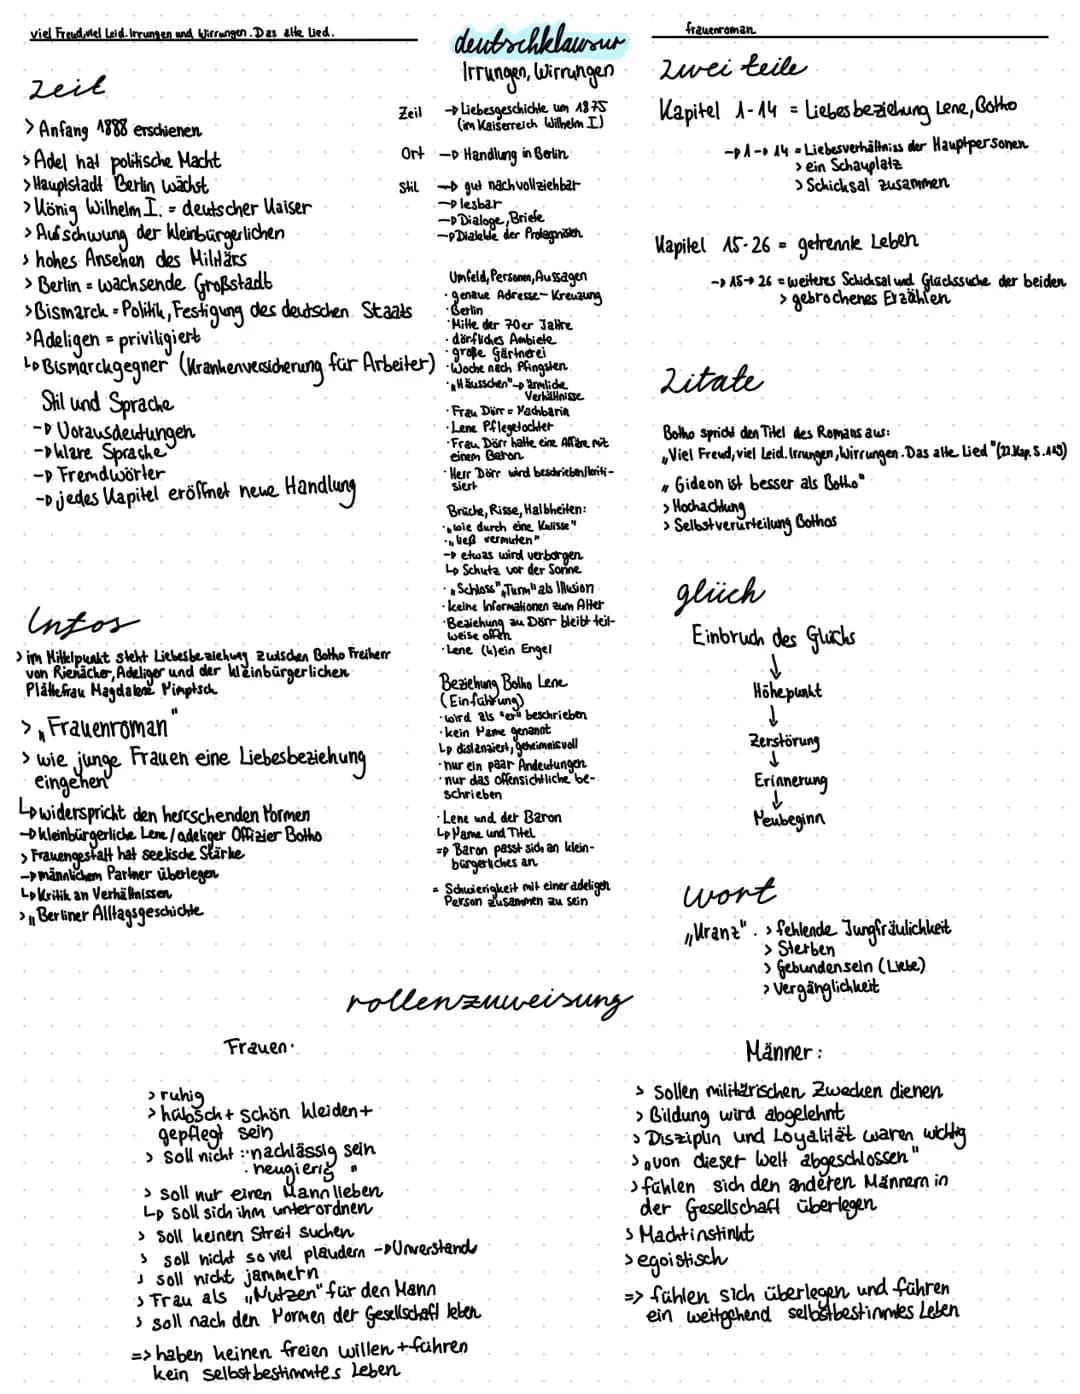 viel Freud, viel Leid. Irrungen und Wirrungen. Das alte Lied.
deutschklausur
Irrungen, Wirrungen
frauenroman
Zeit
> Anfang 1888 erschienen
> Adel hat politische Macht
> Hauptstadt Berlin wächst
> König Wilhelm I. = deutscher Kaiser
> Aufschwung der kleinbürgerlichen
> hohes Ansehen des Militärs
> Berlin = wachsende Großstadt
> Bismarck = Politik, Festigung des deutschen Staats
> Adeligen = priviligiert
↳ Bismarckgegner (Krankenversicherung für Arbeiter)
Stil und Sprache
→ Vorausdeutungen
→ klare Sprache
→ Fremdwörter
→ jedes Kapitel eröffnet neue Handlung
Infos
> im Mittelpunkt steht Liebesbeziehung zwischen Botho Freiherr
von Rienäcker, Adeliger und der kleinbürgerlichen
Plättefrau Magdalene Nimptsch
> „Frauenroman"
> wie junge Frauen eine Liebesbeziehung
eingehen
↳ widerspricht den herrschenden Normen
→ kleinbürgerliche Lene / adeliger Offizier Botho
> Frauengestalt hat seelische Stärke
→ männlichem Partner überlegen
↳ Kritik an Verhältnissen
> „Berliner Alltagsgeschichte
Zeit → Liebesgeschichte um 1875
(im Kaiserreich Wilhelm I)
Ort → Handlung in Berlin
Stil → gut nachvollziehbar
→ lesbar
→ Dialoge, Briefe
→ Dialekte der Protagnisten
Umfeld, Personen, Aussagen
· genaue Adresse - Kreuzung
· Berlin
· Mitte der 70er Jahre
· dörfliches Ambiete
· große Gärtnerei
· Woche nach Pfingsten
· „Häusschen" → ärmliche
Verhältnisse
· Frau Dörr = Nachbarin
· Lene Pflegetochter
· Frau Dörr hatte eine Affäre mit
einem Baron
· Herr Dörr wird beschrieben/kriti-
siert
Brüche, Risse, Halbheiten:
· „wie durch eine Kulisse"
· „ließ vermuten"
→ etwas wird verborgen
↳ Schutz vor der Sonne
· „Schloss", „Turm" als Illusion
· keine Informationen zum Alter
· Beziehung zu Dörr bleibt teil-
weise offen
· Lene (k)ein Engel
Beziehung Botho Lene
(Einführung)
· wird als "er" beschrieben
· kein Name genannt
↳ distanziert, geheimnisvoll
· nur ein paar Andeutungen
· nur das offensichtliche be-
schrieben
· Lene und der Baron
↳ Name und Titel
⇒ Baron passt sich an klein-
bürgerliches an
= Schwierigkeit mit einer adeligen
Person zusammen zu sein
zwei teile
Kapitel 1-14 = Liebesbeziehung Lene, Botho
→ 1→14 = Liebesverhältniss der Hauptpersonen
> ein Schauplatz
> Schicksal zusammen
Kapitel 15-26 = getrennte Leben
→ 15→26 = weiteres Schicksal und Glückssuche der beiden
> gebrochenes Erzählen
Zitate
Botho spricht den Titel des Romans aus:
„Viel Freud, viel Leid. Irrungen, Wirrungen. Das alte Lied" (22. Kap. S. 149)
„Gideon ist besser als Botho"
> Hochachtung
> Selbstverurteilung Bothos
glück
Einbruch des Glücks
↓
Höhepunkt
↓
Zerstörung
↓
Erinnerung
↓
Neubeginn
wort
„Kranz". > fehlende Jungfräulichkeit
> Sterben
> Gebundensein (Liebe)
> Vergänglichkeit
rollenzuweisung
Frauen:
> ruhig
> hübsch + schön kleiden +
gepflegt sein
> soll nicht : · nachlässig sein
· neugierig "
> soll nur einen Mann lieben
↳ soll sich ihm unterordnen
> soll keinen Streit suchen
> soll nicht so viel plaudern → Unverstand
> soll nicht jammern
> Frau als „Nutzen" für den Mann
> soll nach den Normen der Gesellschaft leben
=> haben keinen freien willen + führen
kein selbstbestimmtes Leben
Männer:
> Sollen militärischen Zwecken dienen
> Bildung wird abgelehnt
> Disziplin und Loyalität waren wichtig
> „von dieser Welt abgeschlossen"
> fühlen sich den anderen Männern in
der Gesellschaft überlegen
> Machtinstinkt
> egoistisch
=> fühlen sich überlegen und führen
ein weitgehend selbstbestimmtes Leben